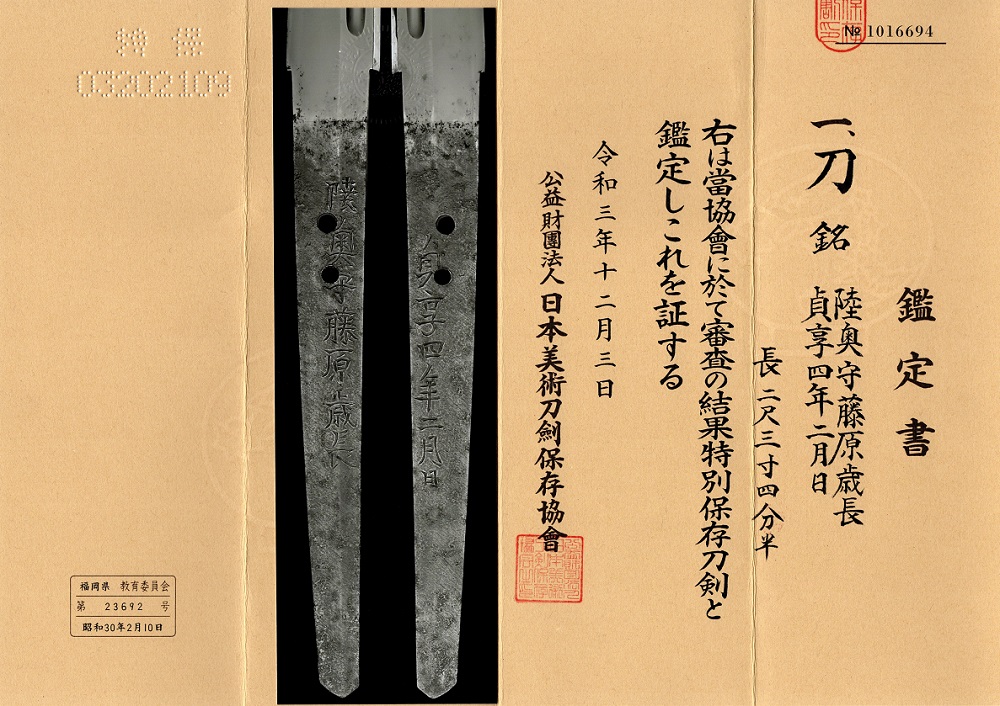 № 1016694
鑑定書
一、刀 銘 陸奥守藤原歳長
貞享四年二月日
長 二尺三寸四分半
右は當協會に於て審査の結果特別保存刀剣と
鑑定しこれを証する
令和三年十二月三日
公益財團法人 日本美術刀劍保存協會
陸奥守藤原歳長
貞享四年二月日
特保
03202109
福岡県 教育委員会
第 23692 号
昭和30年2月10日